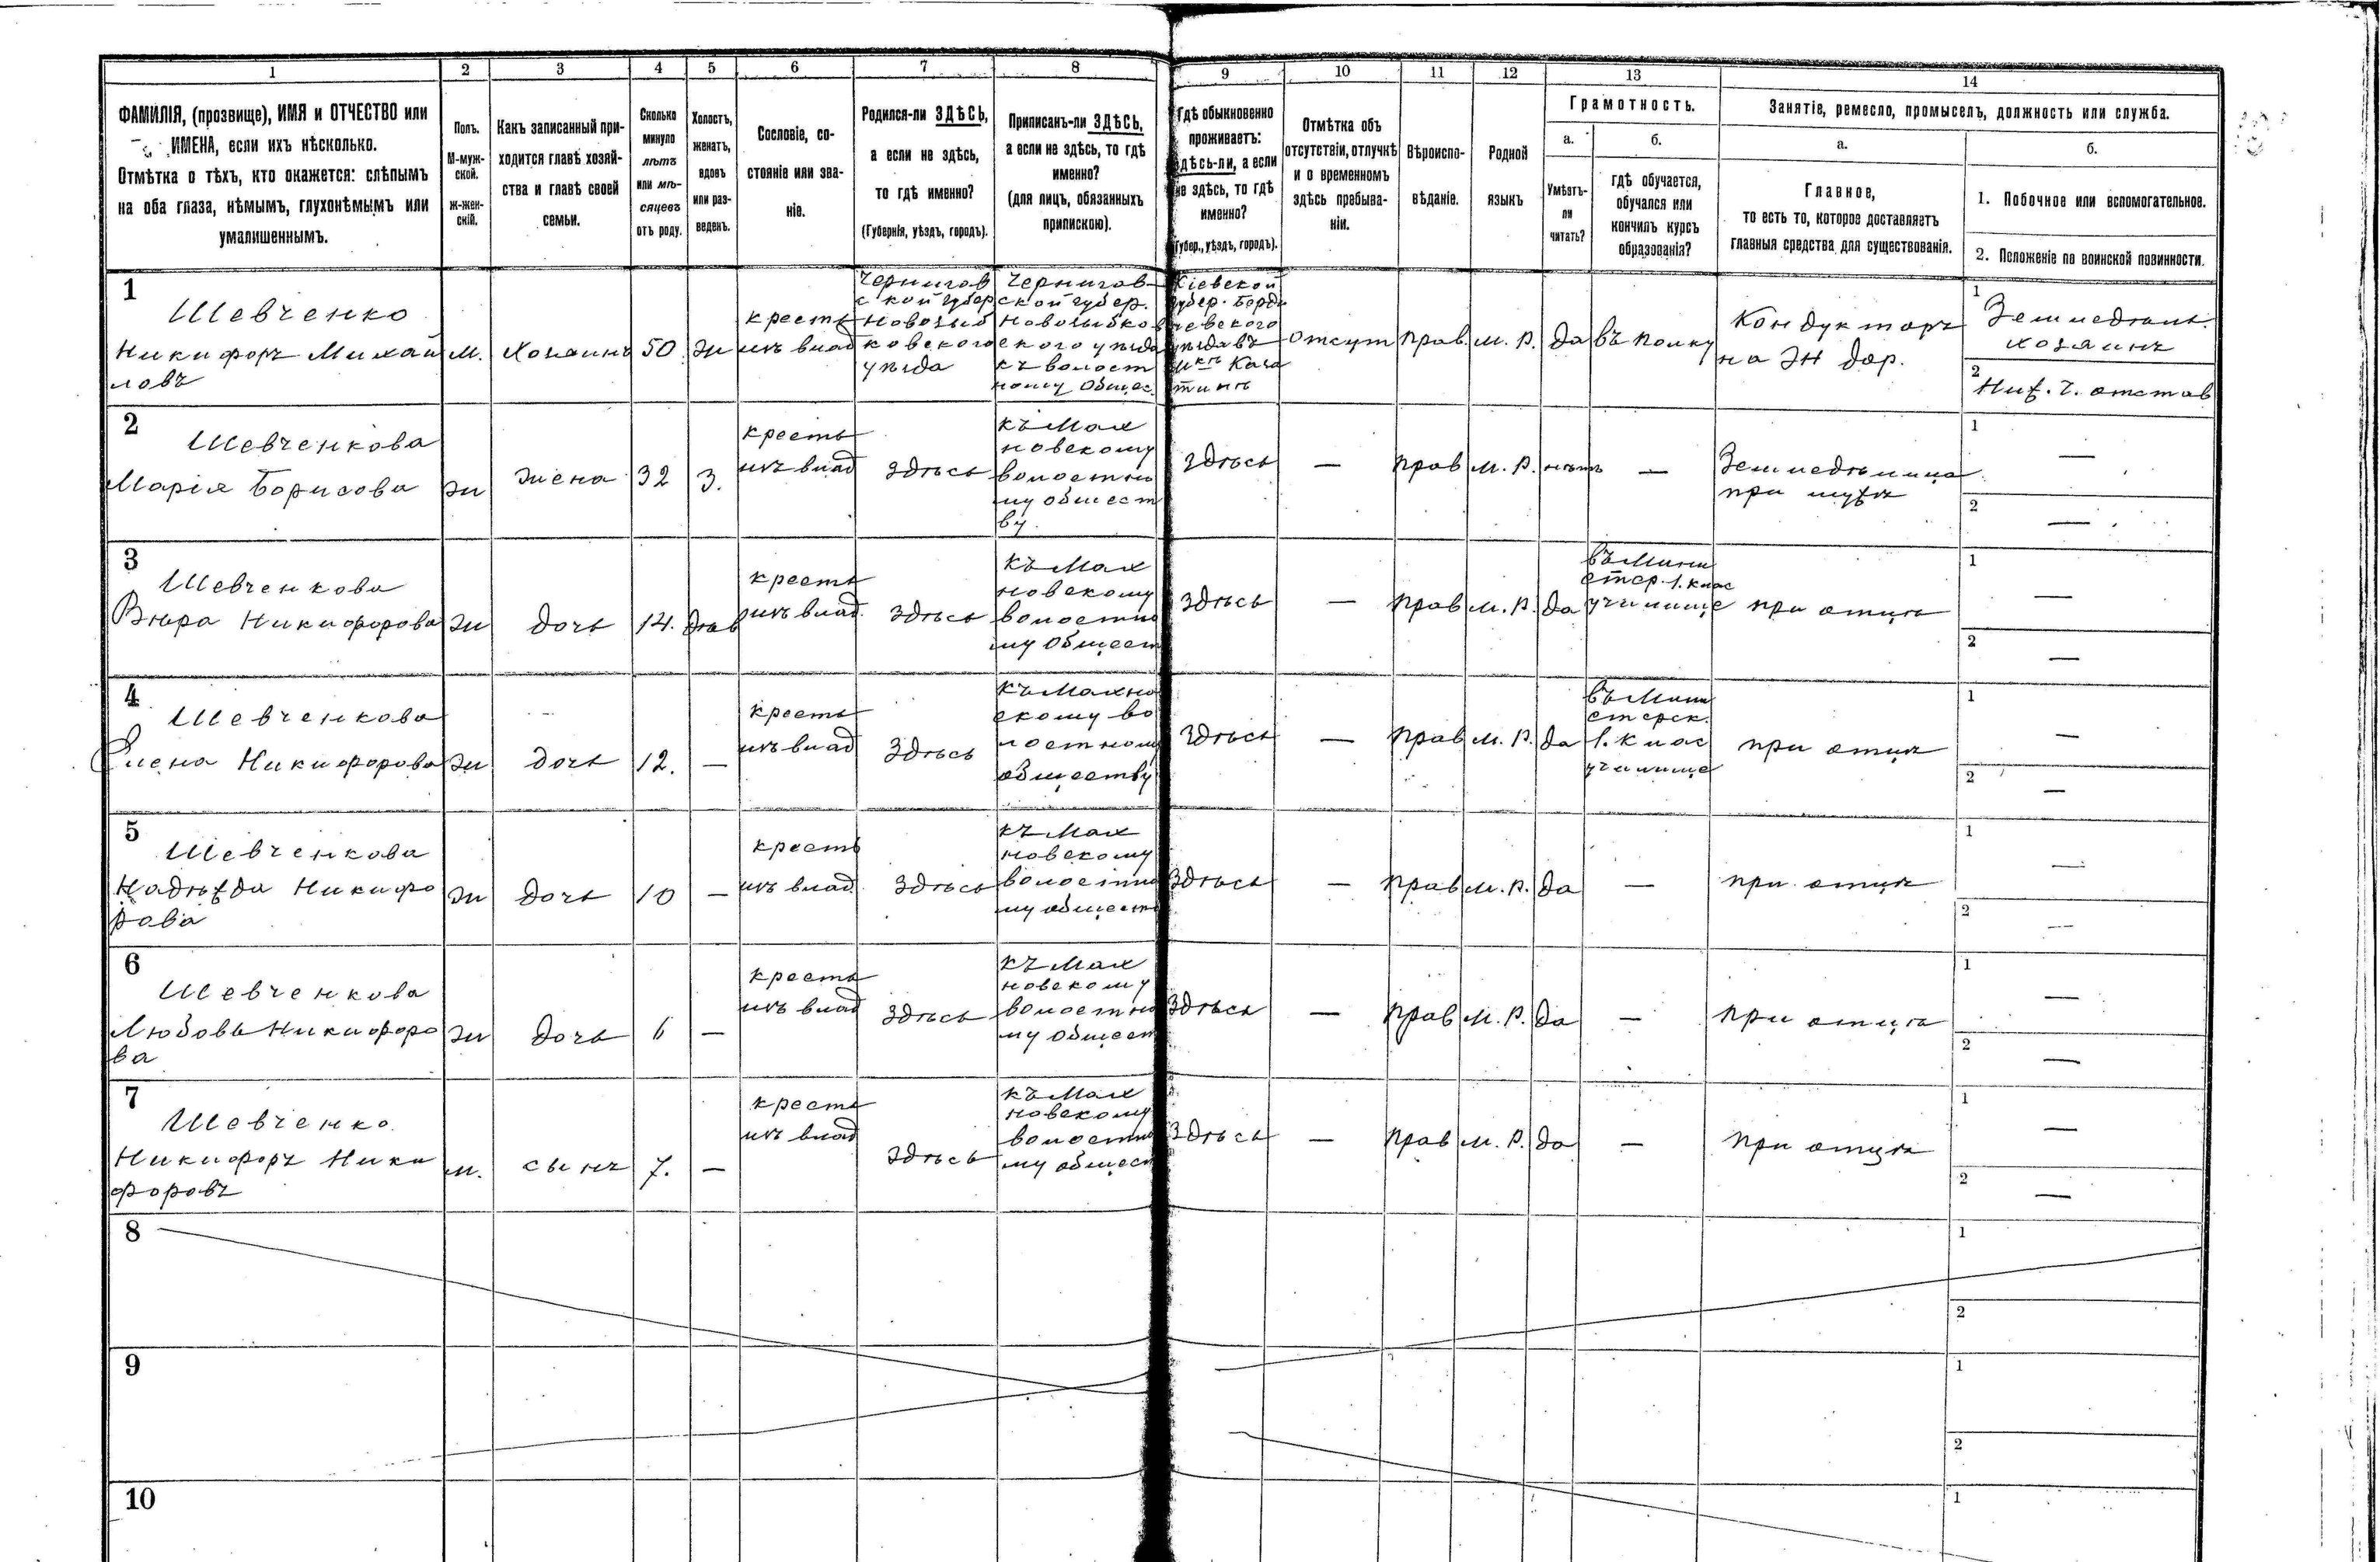 1 2 3 4 5 6 7 8 9 10 11 12 13 14
ФАМИЛІЯ, (прозвище), ИМЯ и ОТЧЕСТВО или
ИМЕНА, если ихъ нѣсколько.
Отмѣтка о тѣхъ, кто окажется: слѣпымъ
на оба глаза, нѣмымъ, глухонѣмымъ или
умалишеннымъ.
Полъ.
М-муж-
ской.
ж-жен-
скій.
Какъ записанный при-
ходится главѣ хозяй-
ства и главѣ своей
семьи.
Сколько
минуло
лѣтъ
или мѣ-
сяцевъ
отъ роду.
Холостъ,
женатъ,
вдовъ
или раз-
веденъ.
Сословіе, со-
стояніе или зва-
ніе.
Родился-ли ЗДѢСЬ,
а если не здѣсь,
то гдѣ именно?
(Губернія, уѣздъ, городъ).
Приписанъ-ли ЗДѢСЬ,
а если не здѣсь, то гдѣ
именно?
(для лицъ, обязанныхъ
припискою).
Гдѣ обыкновенно
проживаетъ:
здѣсь-ли, а если
не здѣсь, то гдѣ
именно?
(Губер., уѣздъ, городъ).
Отмѣтка объ
отсутствіи, отлучкѣ
и о временномъ
здѣсь пребыва-
ніи.
Вѣроиспо-
вѣданіе.
Родной
языкъ
Грамотность.
а.
Умѣетъ-
ли
читать?
б.
гдѣ обучается,
обучался или
кончилъ курсъ
образованія?
Занятіе, ремесло, промыселъ, должность или служба.
а.
Главное,
то есть то, которое доставляетъ
главныя средства для существованія.
б.
1. Побочное или вспомогательное.
2. Положеніе по воинской повинности.
1
Шевченко
Никифоръ Михай
ловъ
м.
Хозяинъ
50
ж
кресть
инъ влад
Чернигов
ской губер
Новозыб
ковскаго
уѣзда
Чернигов
ской губер.
Новозыбков
скаго уѣзда
къ волост
ному Общес
Кіевской
губер. Берди
чевскаго
уѣзда въ
Каза
тинѣ
отсут
прав.
м. р.
да
въ полку
Кондукторъ
на жд дор.
1
Земледѣл.
хозяинъ
2
Ниж. ч. отстав
2
Шевченкова
Марія Борисова
ж
жена
32
З.
кресть
инъ влад
здѣсь
къ Мах
новскому
волостно
му общест
ву
здѣсь
—
прав
м. р.
нѣтъ
—
Земледѣлица
при мужѣ
1
—
2
—
3
Шевченкова
Вѣра Никифорова
ж
дочь
14.
дѣв
кресть
инъ влад.
здѣсь
къ Мах
новскому
волостно
му Общест
здѣсь
—
прав
м. р.
да
въ Мини
стер. 1. клас
училище
при отцѣ
1
—
2
—
4
Шевченкова
Елена Никифорова
ж
дочь
12.
—
кресть
инъ влад
здѣсь
къ Махно
скому во
лостному
обществу
здѣсь
—
прав
м. р.
да
въ Мини
стерск.
1. клас
училище
при отцѣ
1
—
2
—
5
Шевченкова
Надежда Никифо
рова
ж
дочь
10
—
кресть
инъ влад
здѣсь
къ Мах
новскому
волостно
му общест
здѣсь
—
прав
м. р.
да
—
при отцѣ
1
—
2
—
6
Шевченкова
Любовь Никифоро
ва
ж
дочь
6
—
кресть
инъ влад
здѣсь
къ Мах
новскому
волостно
му общест
здѣсь
—
прав
м. р.
да
—
при отцѣ
1
—
2
—
7
Шевченко
Никифоръ Ники
форовъ
м.
сынъ
7.
—
кресть
инъ влад
здѣсь
къ Мах
новскому
волостно
му общест
здѣсь
—
прав
м. р.
да
—
при отцѣ
1
—
2
—
8
1
2
9
1
2
10
1